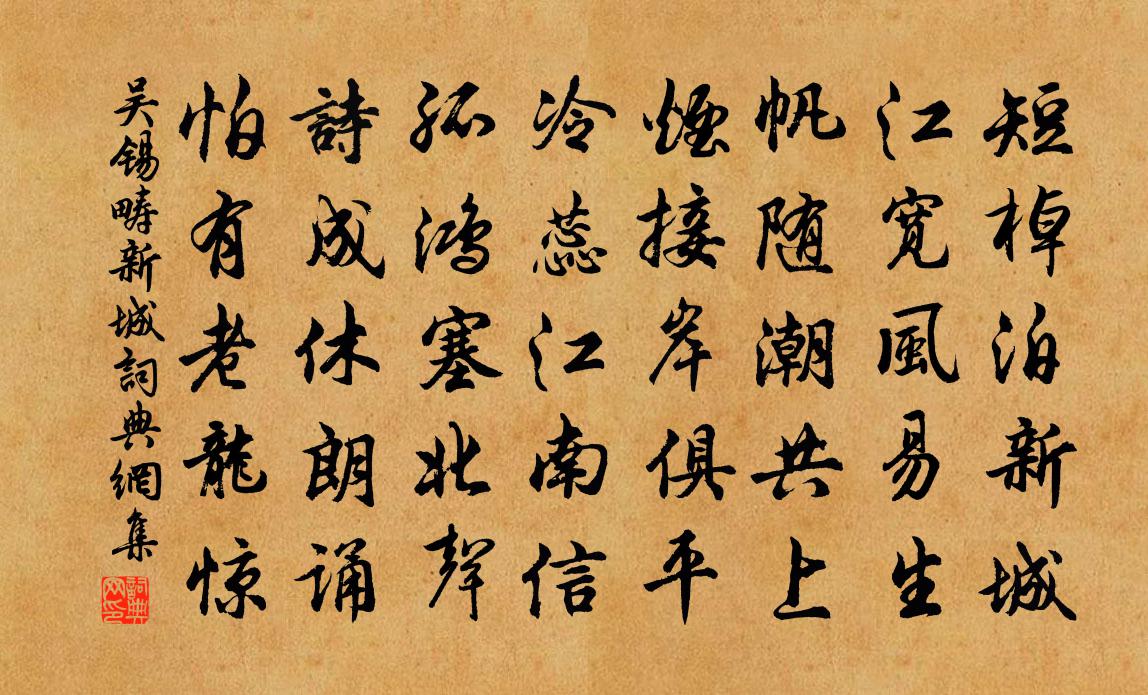 短棹泊新城
江宽風易生
帆随潮共上
煙接岸俱平
冷蕊江南信
孤鴻塞北聲
詩成休朗诵
怕有老龍惊
吴錫疇新城詞典網集
詞典网印